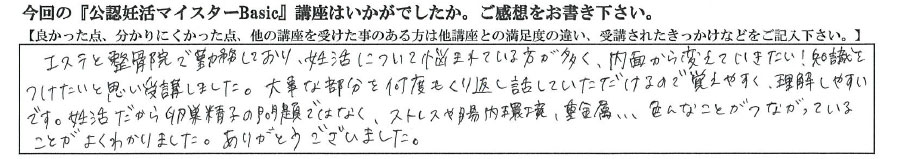 今回の『公認妊活マイスターBasic』講座はいかがでしたか。ご感想をお書き下さい。
【良かった点、分かりにくかった点、他の講座を受けた事のある方は他講座との満足度の違い、受講されたきっかけなどをご記入下さい。】
エステと整骨院で勤務しており、妊活について悩まれている方が多く、内面から変えていきたい!知識を
つけたいと思い受講しました。大事な部分を何度もくり返し話していただけるので覚えやすく、理解しやすい
です。妊活だから卵巣精子の問題ではなく、ストレスや腸内環境、重金属... 色んなことがつながっている
ことがよくわかりました。ありがとうございました。